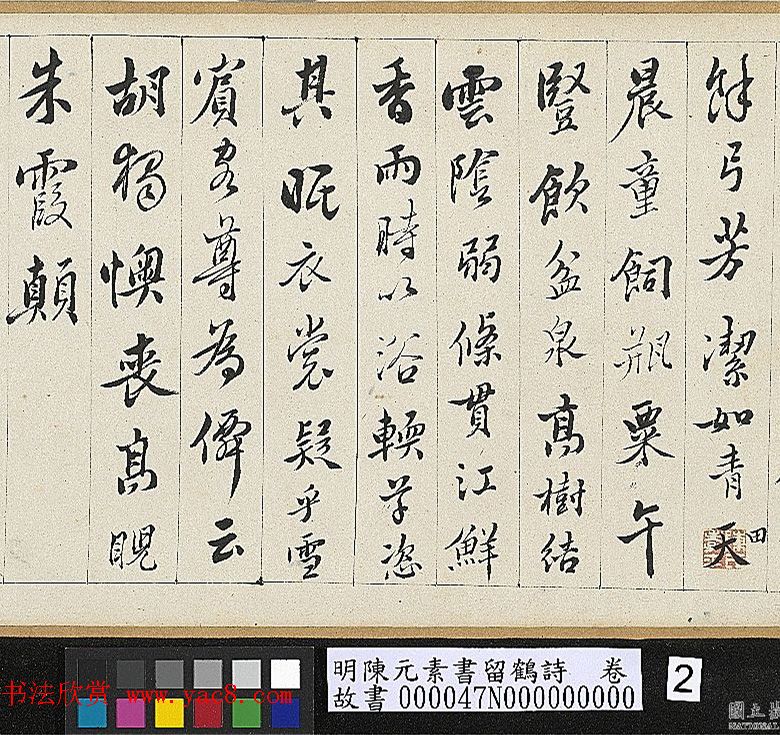 弓芳潔如青天
田
晨童飼瓶粟午
豎飲盆泉高樹結
雲陰弱條貫江鮮
香雨時以浴輭草恣
其眠衣裳疑乎雪
賓客尊為僊云
胡獨懊喪高睨
朱霞顛
明陳元素書留鶴詩 卷
故書 000047N000000000
2
书法欣赏 www.yac8.com
國立
NATIONAL